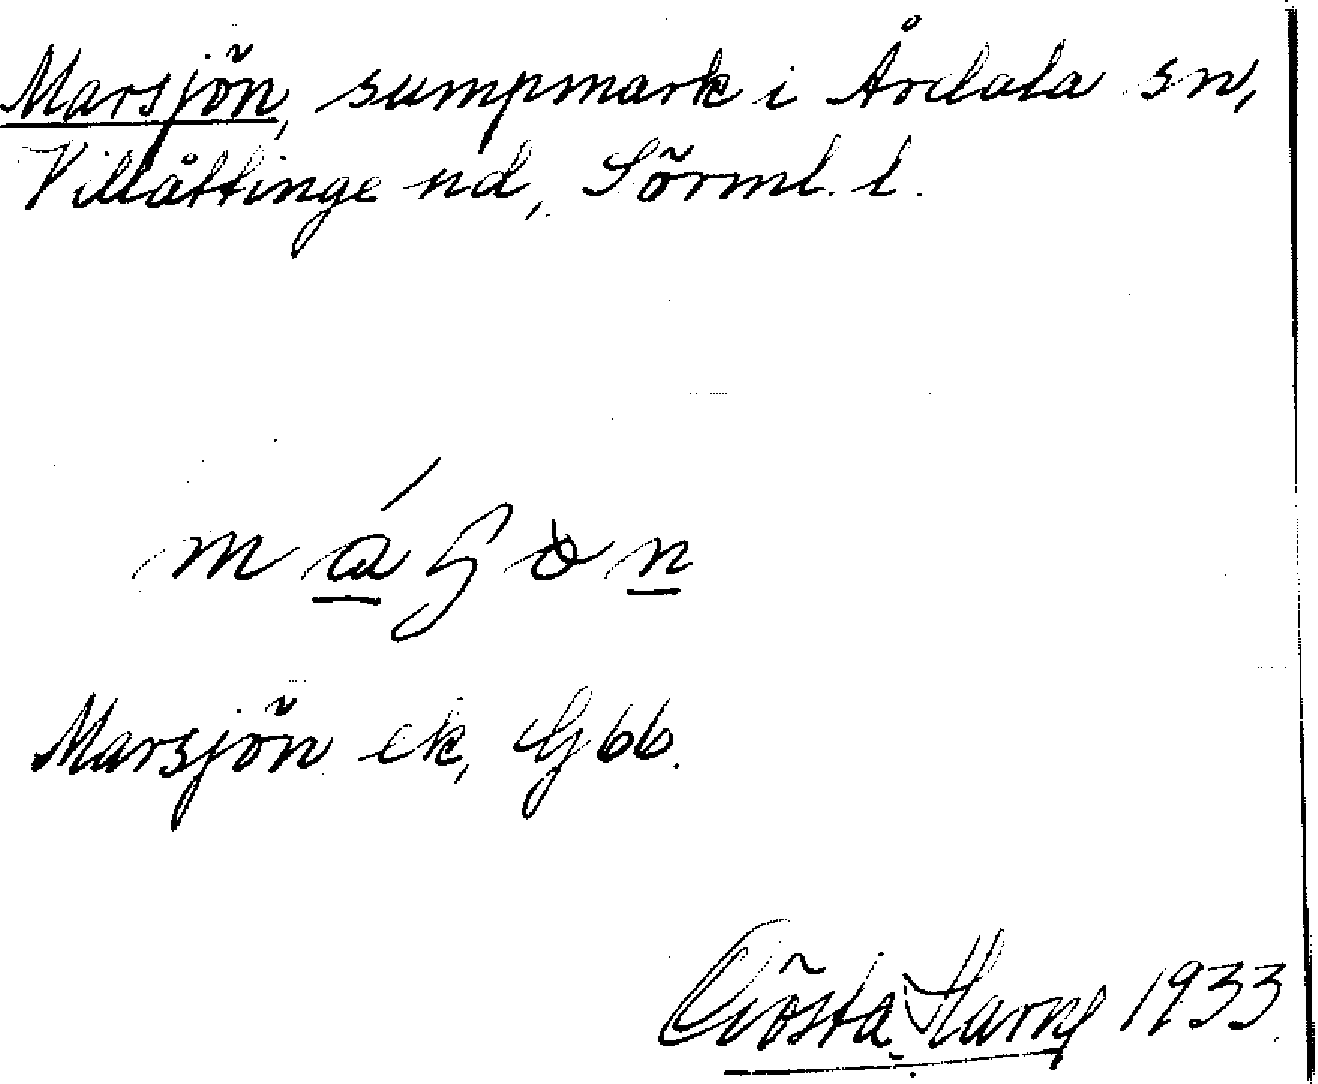 Marsjön, sumpmark i Årdala sn,
Villåttinge hd, Sörml. l.
Marsjön ek, G 66.
Gösta Harne 1933